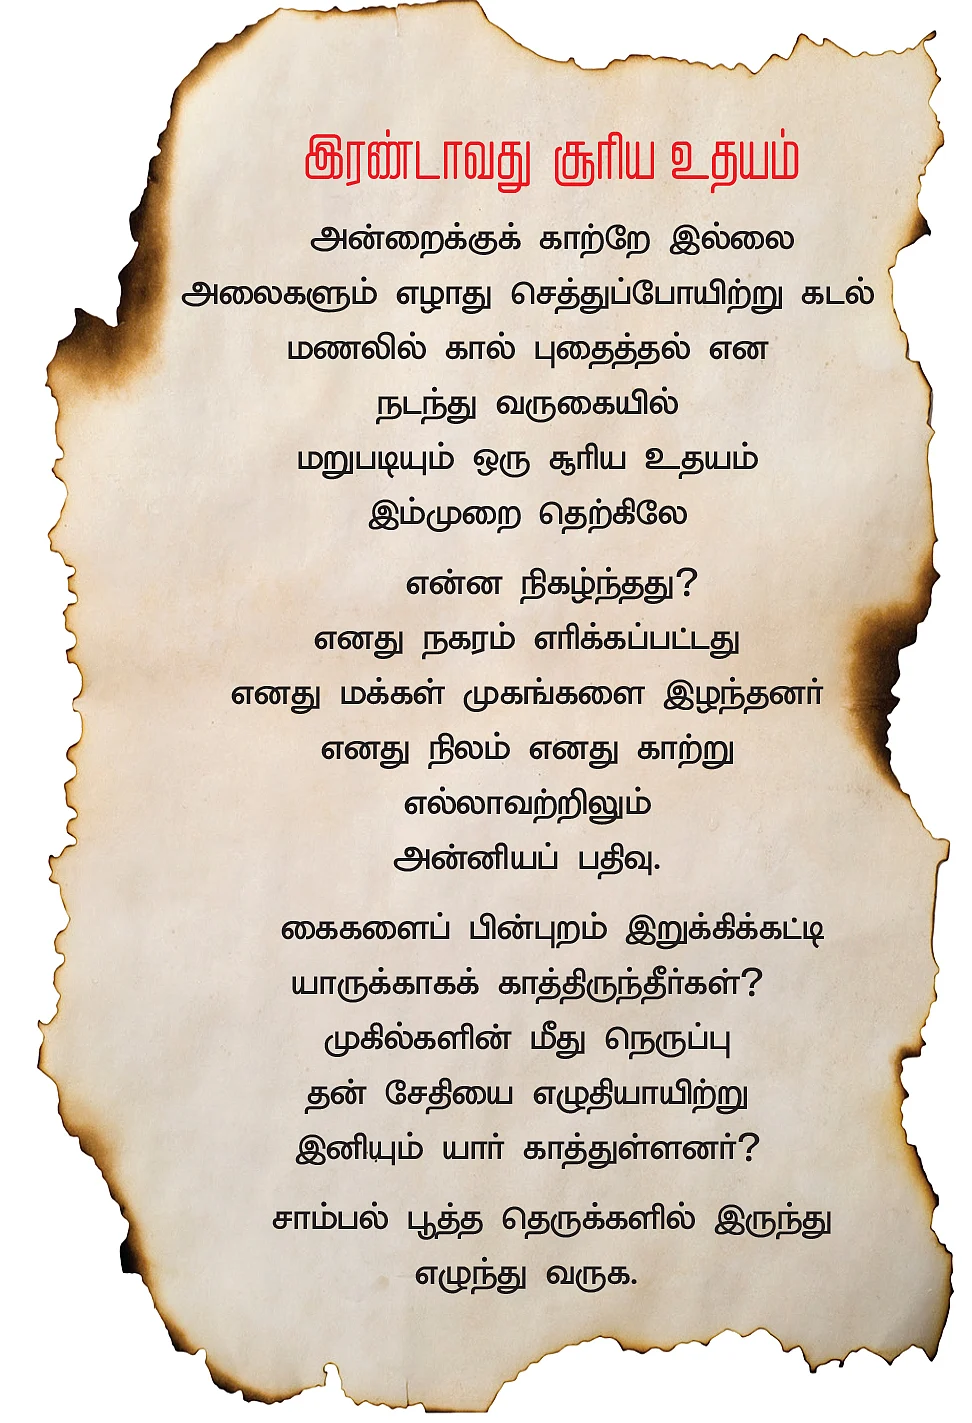 இரண்டாவது சூரிய உதயம்
அன்றைக்குக் காற்றே இல்லை
அலைகளும் எழாது செத்துப்போயிற்று கடல்
மணலில் கால் புதைத்தல் என
நடந்து வருகையில்
மறுபடியும் ஒரு சூரிய உதயம்
இம்முறை தெற்கிலே
என்ன நிகழ்ந்தது?
எனது நகரம் எரிக்கப்பட்டது
எனது மக்கள் முகங்களை இழந்தனர்
எனது நிலம் எனது காற்று
எல்லாவற்றிலும்
அன்னியப் பதிவு.
கைகளைப் பின்புறம் இறுக்கிக்கட்டி
யாருக்காகக் காத்திருந்தீர்கள்?
முகில்களின் மீது நெருப்பு
தன் சேதியை எழுதியாயிற்று
இனியும் யார் காத்துள்ளனர்?
சாம்பல் பூத்த தெருக்களில் இருந்து
எழுந்து வருக.